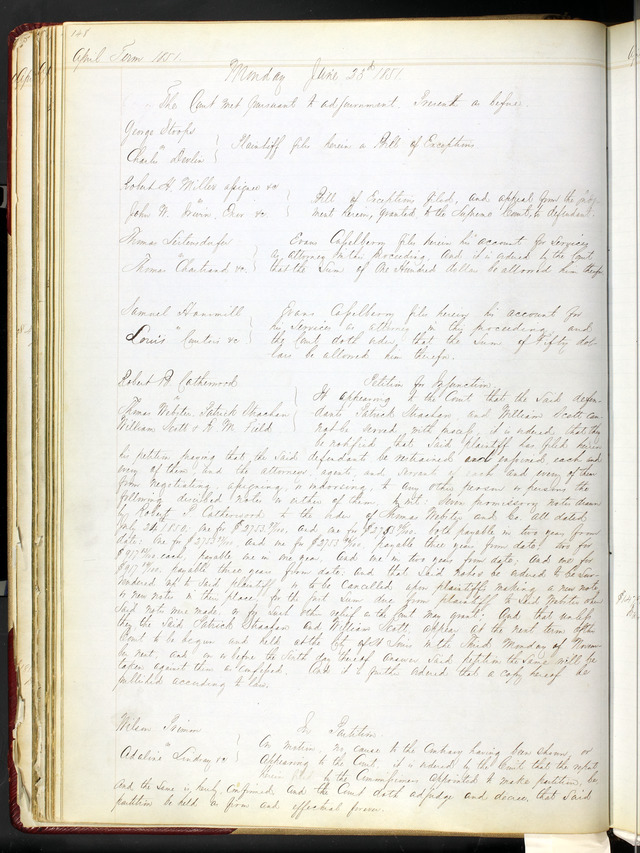 148
April Term 1851.
Monday June 23d 1851
The Court met pursuant to adjournment. Present as before.
George Stoops
"
Charles Devlin
Plaintiff files herein a Bill of Exceptions
Robert H. Miller assignee &c
"
John W. Irwin, Exr &c.
Bill of Exceptions filed, and appeal from the judg-
ment herein, granted to the Supreme Court, to defendant.
Thomas
"
Thomas Chartrand &c.
Evans Casselberry files herein his account for services
as attorney in this proceeding. And it is ordered by the Court
that the Sum of One Hundred dollars be allowed him therefor
Samuel Hammill
"
Louis &c
Evans Casselberry files herein his account for
his services as attorney in this proceeding, and
the Court doth order, that the Sum of Fifty dol-
lars be allowed him therefor.
Robert B. Catherwood
"
Thomas Webster, Patrick Strachan
William Scott & R. M. Field
Petition for Injunction
It appearing to the Court that the said defen-
dants Patrick Strachan and William Scott can-
not be served with process, it is ordered, that they
be notified that said plaintiff has filed herein
his petition praying that the said defendants be restrained and enjoined each and
every of them and the attorneys, agents, and servants of each and every of them
from negotiating, assigning, or endorsing to any other person or persons the
following described notes or either of them to wit: Seven promissory notes drawn
by Robert B. Catherwood to the order of Thomas Webster and Co. all dated
July 1850, one for and one for both payable in two years from
date; one for and one for payable three years from date; two for
each, payable one in one year, and one in two years from date; and one for
payable three years from date; and that said notes be ordered to be sur-
rendered up to said plaintiff, or to be cancelled upon plaintiff's making a new note,
or new notes in their place, for the just sum due from plaintiff to said Webster when
said notes were made, or for such other relief as the Court may grant; And that unless
they the said Patrick Strachan and William Scott, appear at the next term of this
Court to be begun and held at the City of St Louis on the Third Monday of Novem-
ber next, and on or before the Sixth day thereof answer said petition the same will be
taken against them as confessed. And it is further ordered that a copy hereof be
published according to law.
Wilson Primm
"
Adaline Lindsay &c
In Partition
On motion, no cause to the contrary having been shown, or
appearing to the Court, it is ordered by the Court that the report
herein by the Commissioners appointed to make partition, be,
And the same is, hereby confirmed, And the Court doth adjudge and decree, that said
partition be held as firm and effectual forever.